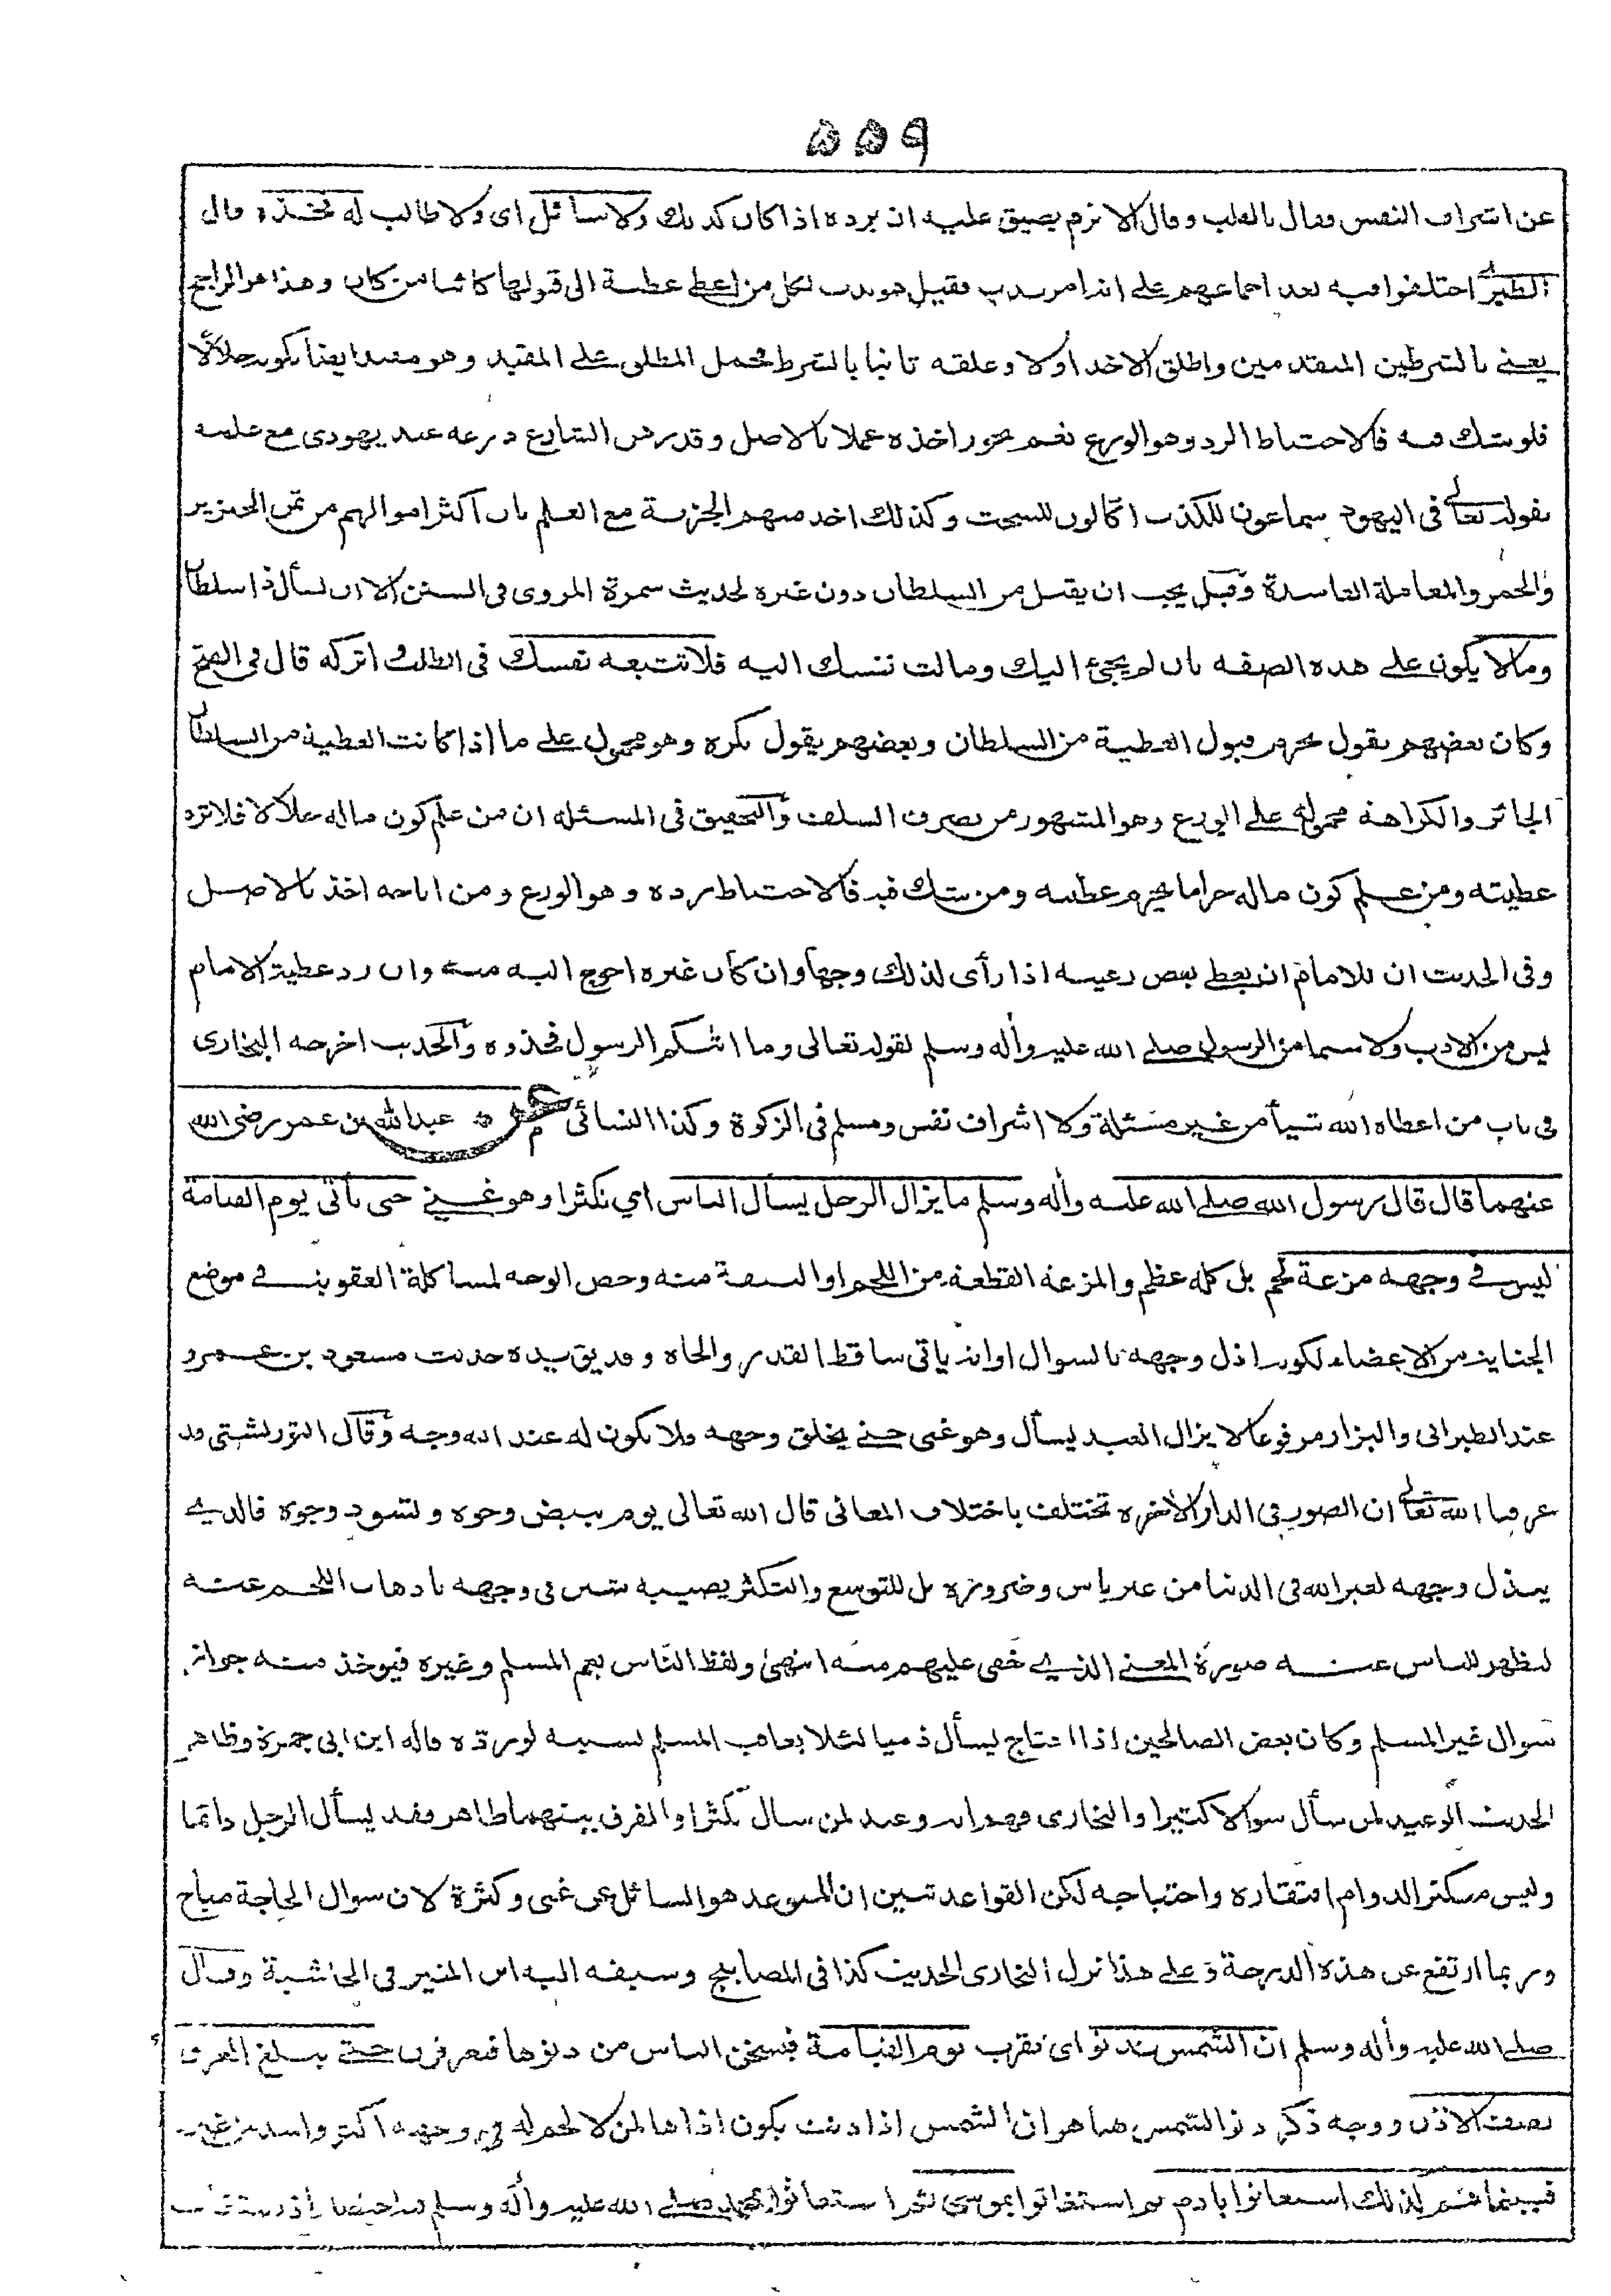 ٥٥٩
عن اشراف النفس فقال بالقلب وقال الاثرم يضيق عليه ان يرده اذا كان كذلك ولا سائل اى ولا طالب له فخذه وقال
الطبرى اختلفوا فيه بعد اجماعهم على انه امر ندب فقيل هو ندب لكل من اعطى عطية الى قبولها كائنا من كان وهذا هو الراجح
يعنى بالشرطين المتقدمين واطلق الاخذ اولا وعلقه ثانيا بالشرط فحمل المطلق على المقيد وهو مقيد ايضا بكونه حلالا
فلو شك فيه فالاحتياط الرد وهو الورع نعم يجوز اخذه عملا بالاصل وقد رهن الشارع درعه عند يهودى مع علمه
بقوله تعالى فى اليهود سماعون للكذب اكالون للسحت وكذلك اخذ منهم الجزية مع العلم بان اكثر اموالهم من ثمن الخنزير
والخمر والمعاملة الفاسدة وقيل يجب ان يقبل من السلطان دون غيره لحديث سمرة المروى فى السنن الا ان يسأل ذا سلطان
وما لا يكون على هذه الصفه بان لم يجئ اليك ومالت نفسك اليه فلا تتبعه نفسك فى الطلب واتركه قال فى الفتح
وكان بعضهم يقول يحرم قبول العطية من السلطان وبعضهم يقول يكره وهو محمول على ما اذا كانت العطية من السلطان
الجائر والكراهة محمولة على الورع وهو المشهور من تصرف السلف والتحقيق فى المسئله ان من علم كون ماله حلالا فلا ترد
عطيته ومن علم كون ماله حراما فيحرم عطيته ومن شك فيه فالاحتياط رده وهو الورع ومن اباحه اخذ بالاصل
وفى الحديث ان للامام ان يعطى بعض رعيته اذا رأى لذلك وجها وان كان غيره احوج اليه منه وان رد عطية الامام
ليس من الادب ولا سيما من الرسول صلى الله عليه وأله وسلم لقوله تعالى وما اتٰكم الرسول فخذوه والحديث اخرجه البخارى
فى باب من اعطاه الله شيأ من غير مسئلة ولا اشراف نفس ومسلم فى الزكوة وكذا النسائى عن عبد الله بن عمر رضى الله
عنهما قال قال رسول الله صلى الله عليه وأله وسلم ما يزال الرجل يسأل الناس اى تكثرا وهو غنى حتى يأتى يوم القيامة
ليس فى وجهه مزعة لحم بل كله عظم والمزعة القطعة من اللحم او النتفة منه وخص الوجه لمشاكلة العقوبة فى موضع
الجناية من الاعضاء لكونه اذل وجهه بالسوال او انه ياتى ساقط القدر والجاه وقد يؤيده حديث مسعود بن عمرو
عند الطبرانى والبزار مرفوعا لا يزال العبد يسأل وهو غنى حتى يخلق وجهه فلا يكون له عند الله وجه وقال التوربشتى قد
عرفنا الله تعالى ان الصور فى الدار الأخره تختلف باختلاف المعانى قال الله تعالى يوم تبيض وجوه وتسود وجوه فالذى
يبذل وجهه لغير الله فى الدنيا من غير باس وضرورة بل للتوسع والتكثر يصيبه شين فى وجهه باذهاب اللحم عنه
ليظهر للناس عنه صورة المعنى الذى خفى عليهم منه انتهى ولفظ الناس يعم المسلم وغيره فيوخذ منه جواز
سوال غير المسلم وكان بعض الصالحين اذا احتاج يسأل ذميا لئلا يعاقب المسلم بسببه لو رده قاله ابن ابى جمرة وظاهر
الحديث الوعيد لمن سأل سوالا كثيرا والبخارى فهم انه وعيد لمن سال تكثرا والفرق بينهما ظاهر فقد يسأل الرجل دائما
وليس متكثرا لدوام افتقاره واحتياجه لكن القواعد تبين ان المتوعد هو السائل عن غنى وكثرة لان سوال الحاجة مباح
وربما ارتفع عن هذه الدرجة وعلى هذا نزل البخارى الحديث كذا فى المصابيح وسبقه اليه ابن المنير فى الحاشية وقال
صلى الله عليه وأله وسلم ان الشمس تدنو اى تقرب يوم القيامة فيسخن الناس من دنوها فيعرقون حتى يبلغ العرق
نصف الاذن ووجه ذكر دنو الشمس هنا هو ان الشمس اذا دنت يكون اذاها لمن لا لحم له فى وجهه اكثر واشد من غيره
فبينما هم كذلك استغاثوا بادم ثم استغاثوا بموسى ثم استغاثوا بمحمد صلى الله عليه وأله وسلم